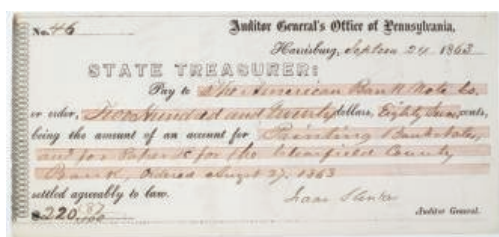 No. 46
Auditor General's Office of Pennsylvania,
Harrisburg, Septem 24 1863
STATE TREASURER:
Pay to The American Bank Note Co.
or order, Two Hundred and Twenty dollars, Eighty cents,
being the amount of an account for Printing Banknotes,
and for Paper &c for the Clearfield County
Bank, Ordered August 27, 1863
settled agreeably to law.
Isaac Slenker
$220
Auditor General.